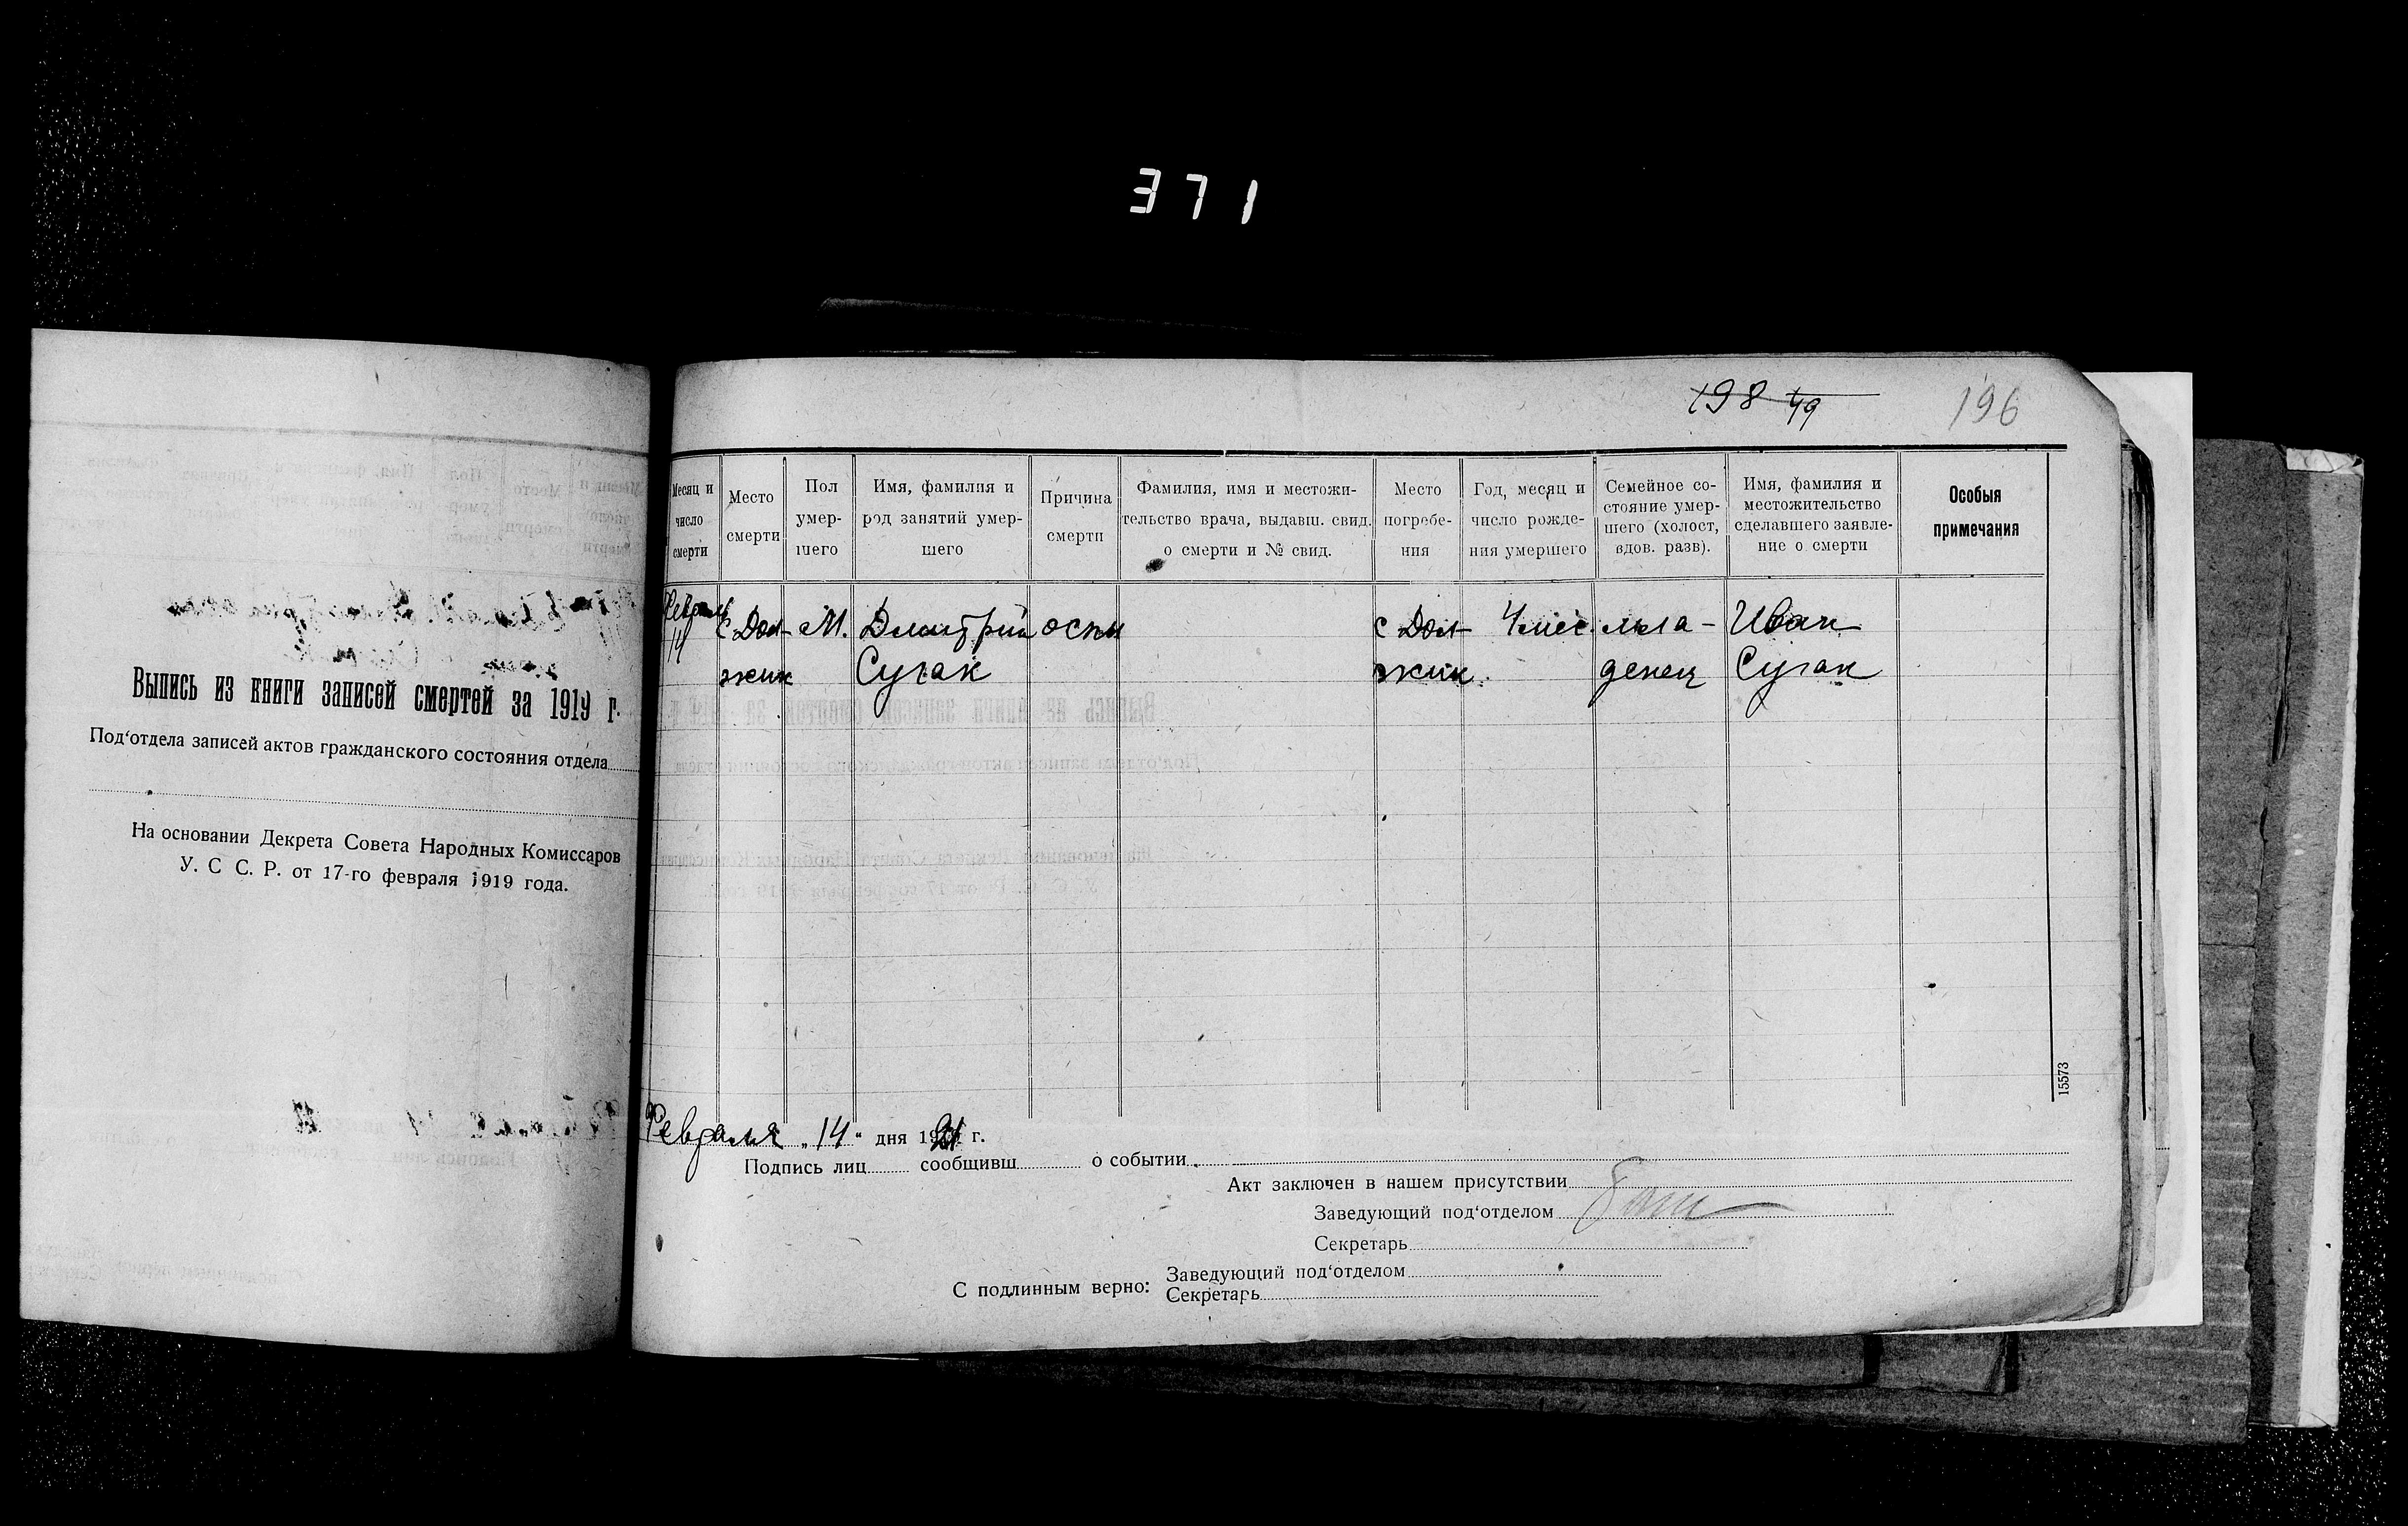 371
198 49
196
Выпись из книги записей смертей за 1919 г.
Под‘отдела записей актов гражданского состояния отдела
На основании Декрета Совета Народных Комиссаров
У. С С. Р. от 17-го февраля 1919 года.
Месяц и число смерти
Место смерти
Пол умер- шего
Имя, фамилия и род занятий умер- шего
Причина смерти
Фамилия, имя и местожи- тельство врача, выдавш. свид. о смерти и № свид.
Место погребе- ния
Год, месяц и число рожде- ния умершего
Семейное со- стояние умер- шего (холост, вдов. разв).
Имя, фамилия и местожительство сделавшего заявле- ние о смерти
Особыя примечания
14
с Дол-
жик
М.
Дмитрий
Сугак
оспы
с Дол-
жик
4 мес.
мла-
денец
Иван
Сугак
15573
Февраля „14“ дня 1921 г.
Подпись лиц сообщивш о событии
Акт заключен в нашем присутствии
Заведующий под‘отделом
Секретарь
С подлинным верно:
Заведующий под‘отделом
Секретарь